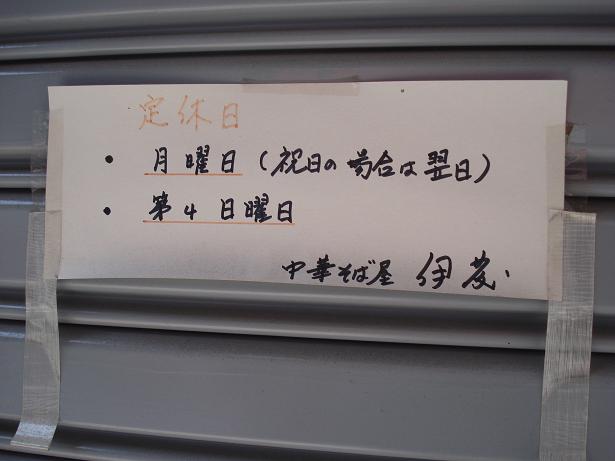 定休日
・ 月曜日(祝日の場合は翌日)
・ 第4日曜日
中華そば屋 伊